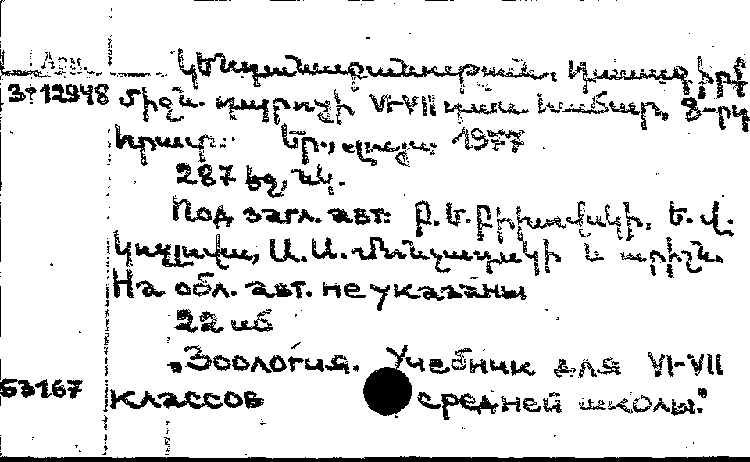 Арм.
Կենդանաբանություն. Դասագիրք
3†12948 միջն. դպրոցի VI-VII դաս. համար. 8-րդ
հրատ. Եր., Լույս. 1977
287 էջ, նկ.
Под загл. авт: Բ. Ե. Բիխովսկի, Ե. Վ.
Կոզլովա, Ա. Ա. Մոնչադսկի և ուրիշն.
На обл. авт. не указаны
22 սб
„Зоология. Учебник для VI-VII
53167 классов средней школы."